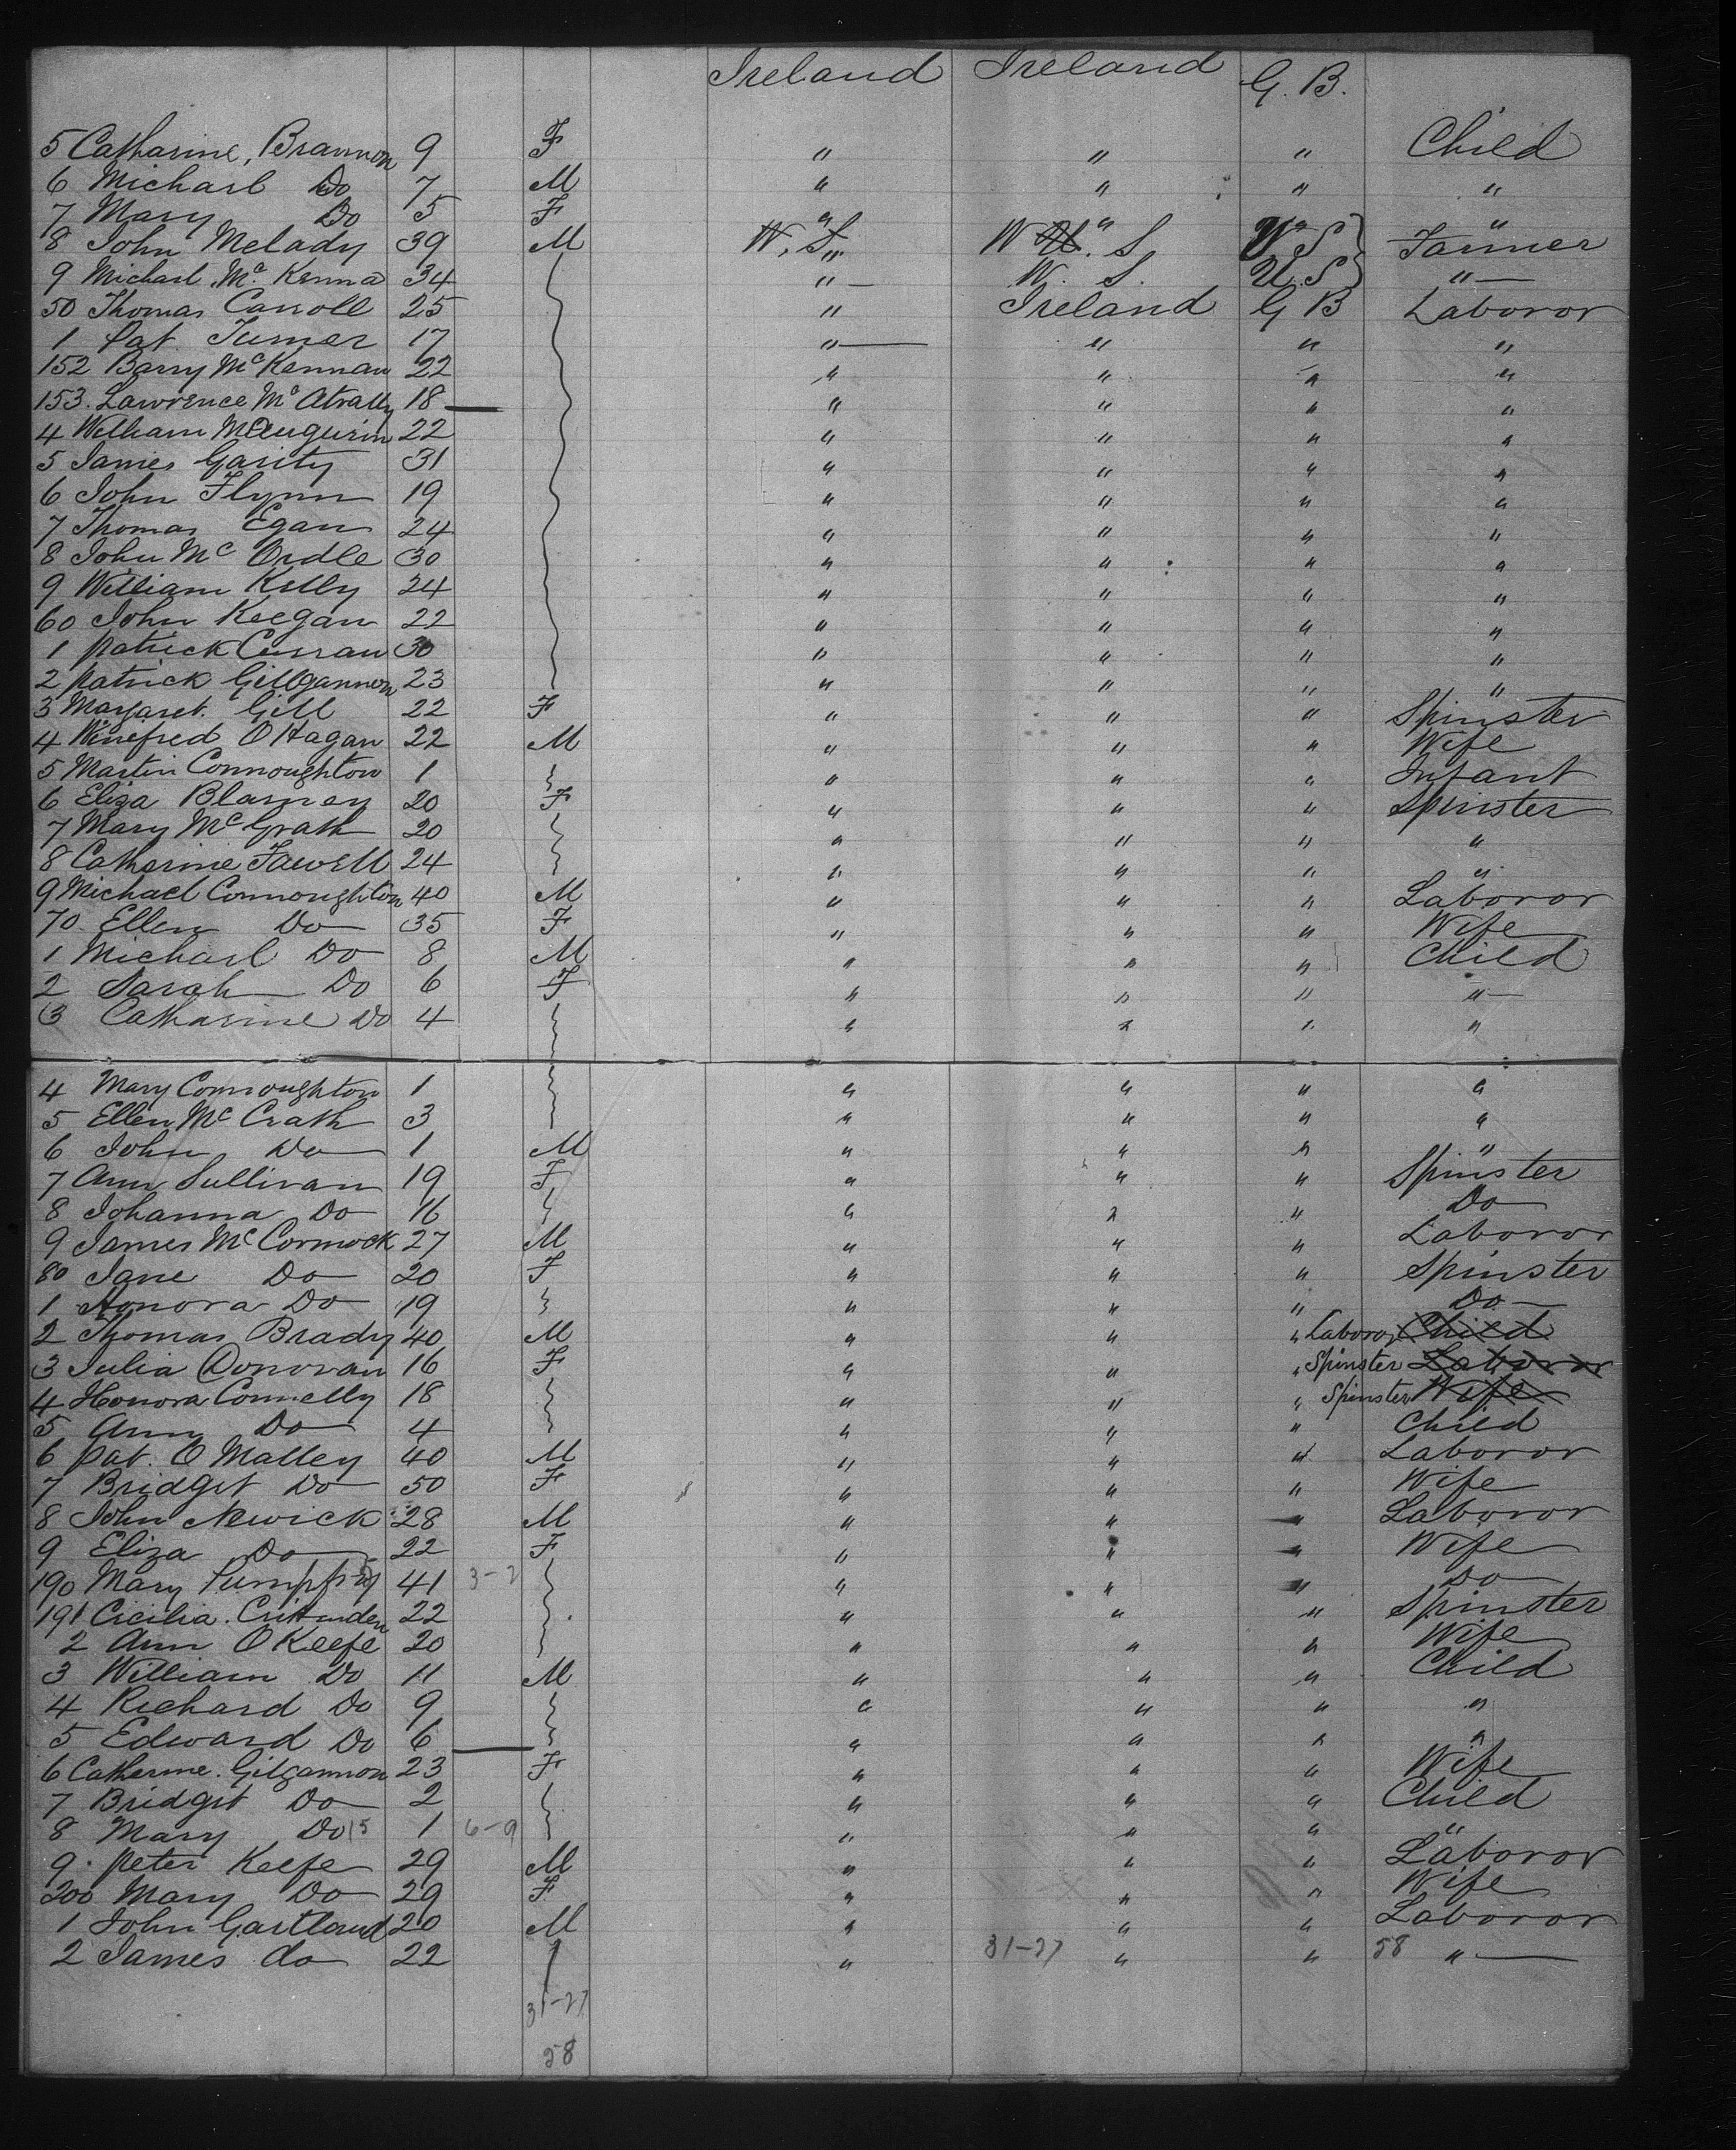 Ireland Ireland G. B.
5 Catharine, Brannon 9 F " " " Child
6 Michael Do 7 M " " " "
7 Mary Do 5 F " " " "
8 John Melady 39 M W. S. W S. W S Farmer
9 Michael Mc Kenna 34 " W. S. U. S " —
50 Thomas Carroll 25 " Ireland G B Laboror
1 Pat Turner 17 " — " " "
152 Barry Mc Kennan 22 " " " "
153. Lawrence Mc 18 " " " "
4 William 22 " " " "
5 James Garity 31 " " " "
6 John Flynn 19 " " " "
7 Thomas Egan 24 " " " "
8 John Mc Ordle 30 " " " "
9 William Kelly 24 " " " "
60 John Keegan 22 " " " "
1 patrick Curran 30 " " " "
2 patrick Gillgannon 23 " " " "
3 Margaret. Gill 22 F " " " Spinster
4 Winefred O Hagan 22 M " " " Wife
5 Martin Connoughton 1 " " " Infant
6 Eliza Blarney 20 F " " " Spinster
7 Mary Mc Grath 20 " " " "
8 Catharine Fawell 24 " " " "
9 Michael Connoughton 40 M " " " Laboror
70 Ellen Do 35 F " " " Wife
1 Michael Do 8 M " " " Child
2 Sarah Do 6 F " " " "
3 Catharine Do 4 " " " "
4 Mary Connoughton 1 " " " "
5 Ellen Mc Crath 3 " " " "
6 John Do 1 M " " " "
7 Ann Sullivan 19 F " " " Spinster
8 Johanna Do 16 " " " Do
9 James Mc Cormock 27 M " " " Laboror
80 Jane Do 20 F " " " Spinster
1 Honora Do 19 " " " Do
2 Thomas Brady 40 M " " " Laboror Child
3 Julia Donovan 16 F " " " Spinster Laboror
4 Honora Connelly 18 " " " Spinster Wife
5 Ann Do 4 " " " Child
6 pat. O Malley 40 M " " " Laboror
7 Bridget Do 50 F " " " Wife
8 John Newick 28 M " " " Laboror
9 Eliza Do 22 F " " " Wife
190 Mary 41 3-2 " " " Do
191 Cicilia. Crittenden 22 " " " Spinster
2 Ann O Keefe 20 " " " Wife
3 William Do 11 M " " " Child
4 Richard Do 9 " " " "
5 Edward Do 6 " " " "
6 Catherine. Gilgannon 23 F " " " Wife
7 Bridget Do 2 " " " Child
8 Mary Do 15 1 6-9 " " " "
9. peter Keefe 29 M " " " Laboror
200 Mary Do 29 F " " " Wife
1 John Gartland 20 M " " " Laboror
2 James do 22 " 31-27 " " 58 " —
31-27
58